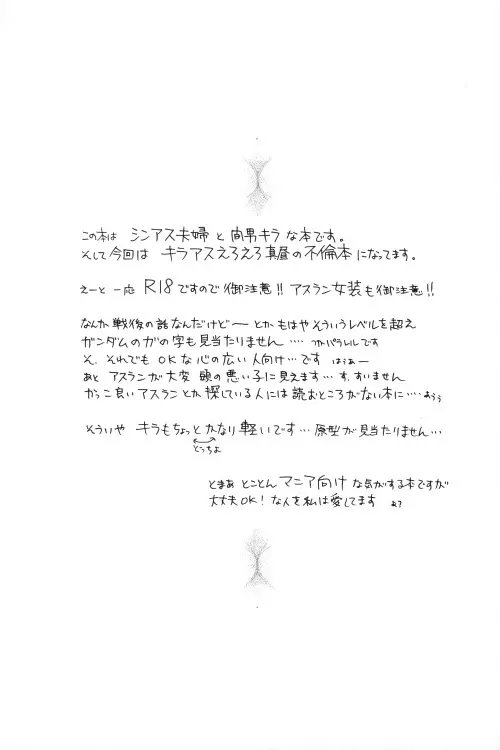 この本は シンアス夫婦 と 間男キラ な本です。
そして今回は キラアスえろえろ真昼の不倫本 になってます。
えーと 一応 R18 ですので 御注意!! アスラン女装も御注意!!
なんか 戦後の話なんだけどー とかもはやそういうレベルを超え
ガンダムのガの字も見当たりません‥‥ つかパラレルです
そ、それでも OK な心の広い 人向け…です はうぁー
あと アスランが大変 頭の悪い子に見えます… す、すいません
かっこ良いアスランとか 探している人には 読むところがない本に‥‥ あうぅ
そういや キラもちょっとかなり軽いです… 原型が見当たりません…
どっちよ
とまぁ とことん マニア向け な気がする本ですが
大丈夫OK! な人を私は愛してます